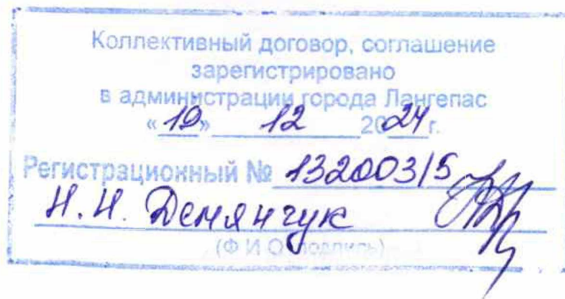 Коллективный договор, соглашение
зарегистрировано
в администрации города Лангепас
«19» 12 2024 г.
Регистрационный № 13200315
Н.Н. Демянчук
(Ф И О подпись)